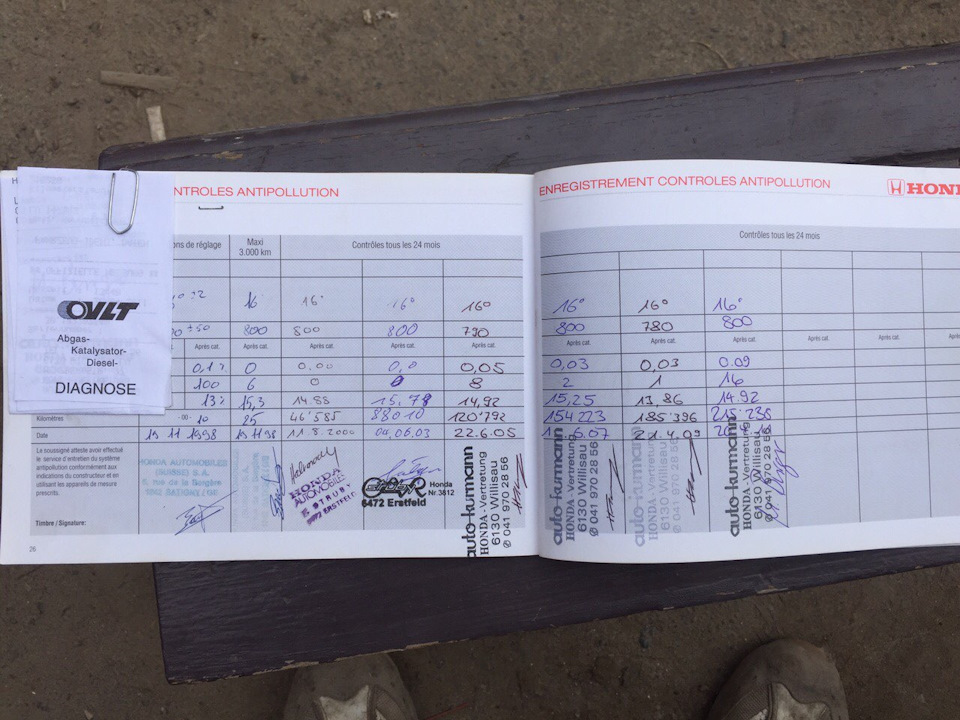 NTROLES ANTIPOLLUTION
OVLT
Abgas-
Katalysator-
Diesel-
DIAGNOSE
ons de réglage Maxi 3.000 km Contrôles tous les 24 mois
16 16° 16° 16°
±50 800 800 800 790
Après cat. Après cat. Après cat. Après cat. Après cat.
0,1% 0 0.00 0,0 0,05
100 6 0 0 8
13% 15,3 14.88 15,78 14,92
Kilomètres -00- 10 25 46'585 88010 120'792
Date 19 11 1998 11.8.2000 04.06.03 22.6.05
La soussigné atteste avoir effectué
le service d'entretien du système
antipollution conformément aux
indications du constructeur et en
utilisant les appareils de mesure
prescrits.
HONDA AUTOMOBILES
(SUISSE) S.A.
5, rue de la Bergère
1242 SATIGNY / GE
HONDA
AUTOMOBILES
6472 ERSTFELD
6472 Erstfeld
Honda
Nr.3812
auto-kurmann
HONDA-Vertretung
6130 Willisau
041 970 28 56
Timbre / Signature:
26
ENREGISTREMENT CONTROLES ANTIPOLLUTION
HON
Contrôles tous les 24 mois
16° 16° 16°
800 780 800
Après cat. Après cat. Après cat. Après cat. Après cat.
0,03 0,03 0.09
2 1 16
15,25 13,86 14.92
154223 185'396 215'238
6.07 21.4.09
auto-kurmann
HONDA-Vertretung
6130 Willisau
041 970 28 56
auto-kurmann
HONDA-Vertretung
6130 Willisau
041 970 28 56
auto-kurmann
HONDA-Vertretung
6130 Willisau
041 970 28 56